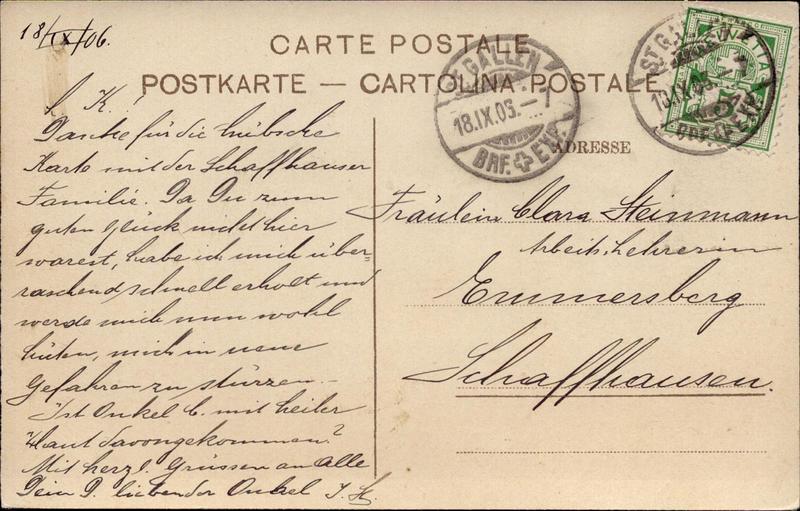 18/IX/06.
CARTE POSTALE
POSTKARTE — CARTOLINA POSTALE
ST. GALLEN
18.IX.06.–7
BRF. EXP.
ST. GALLEN
18.IX.06.–7
BRF. EXP.
HELVETIA
5
ADRESSE
L. K.!
Danke für die hübsche
Karte mit der Schaffhauser
Familie. Da Du zum
guten Glück nicht hier
warest, habe ich mich über-
raschend schnell erholt und
werde mich nun wohl
hüten, mich in neue
Gefahren zu stürzen. –
Ist Onkel C. mit heiler
Haut davongekommen?
Mit herzl. Grüssen an Alle
Dein D. liebender Onkel J. St.
Fräulein Clara Steinmann
Arbeitslehrerin
Emmersberg
Schaffhausen.